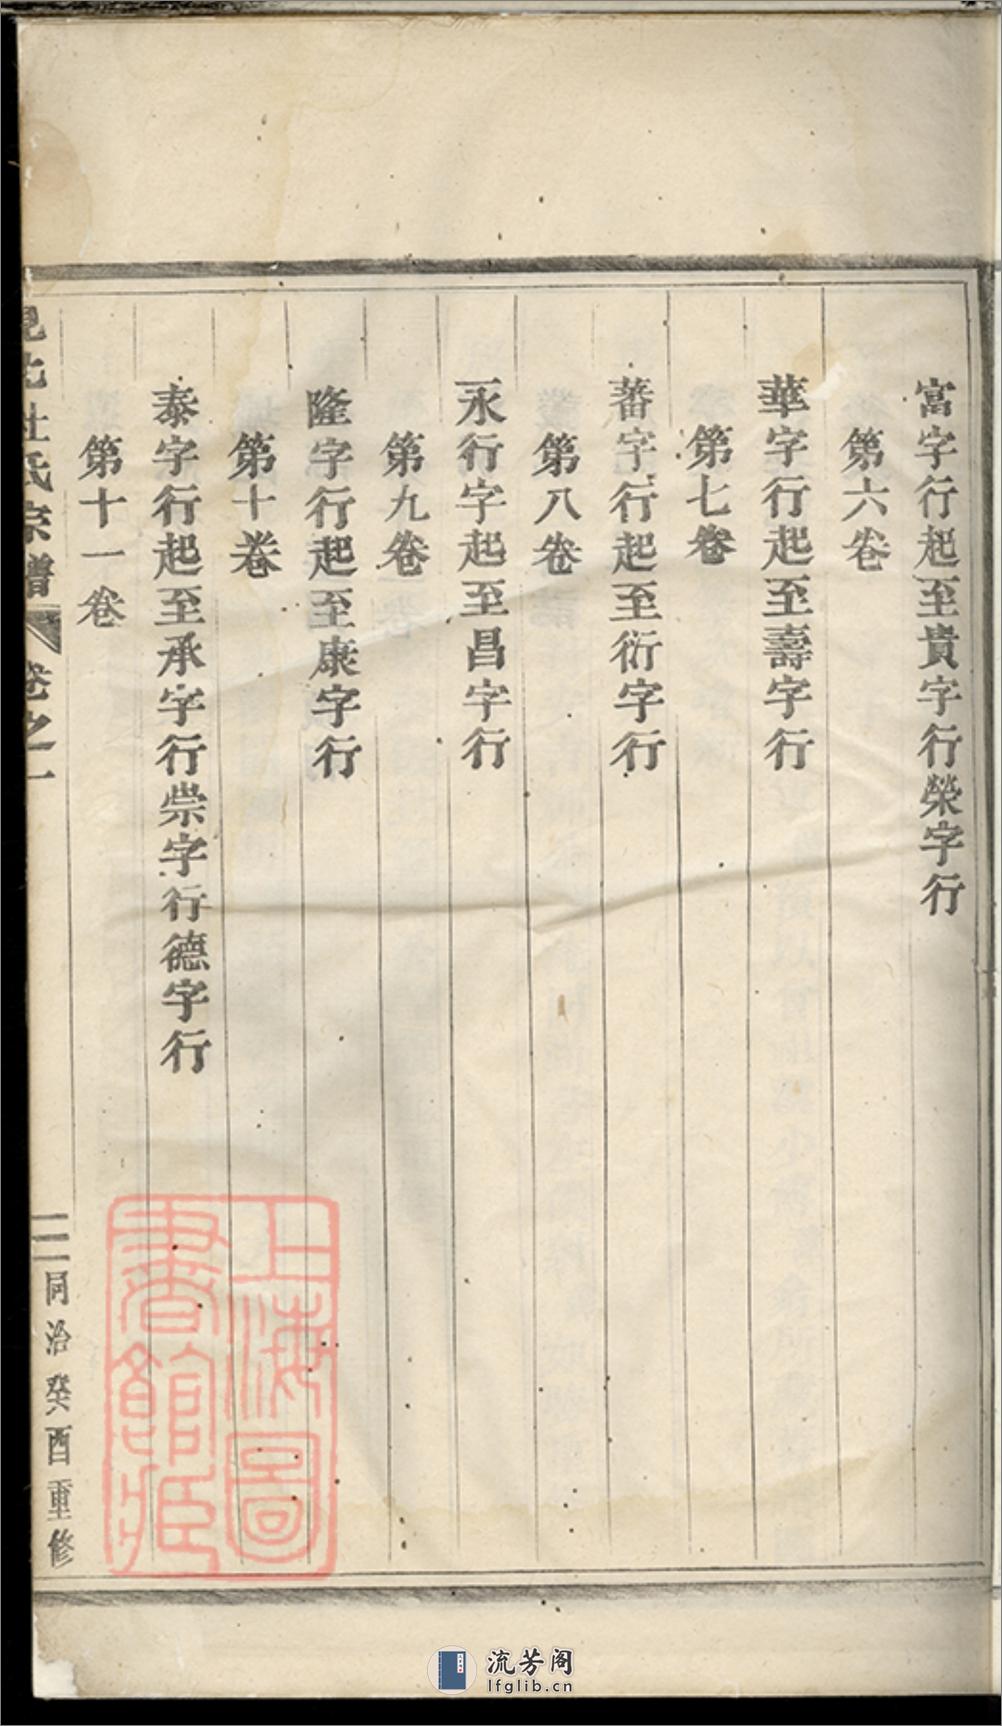 富字行起至貴字行榮字行
第六卷
華字行起至壽字行
第七卷
蕃字行起至衍字行
第八卷
永行字起至昌字行
第九卷
隆字行起至康字行
第十卷
泰字行起至承字行崇字行德字行
第十一卷
杜氏宗譜 卷之一
三 同治癸酉重修
上海圖書館藏
流芳阁
lfglib.cn